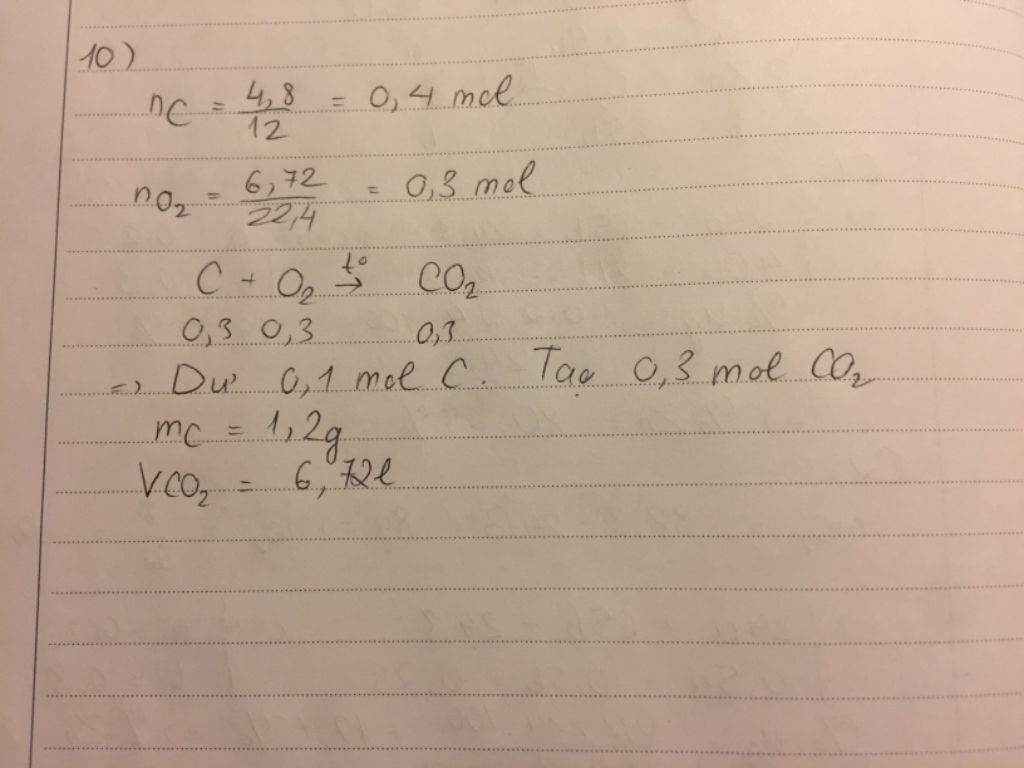 10)
nC = 4,8/12 = 0,4 mol
nO₂ = 6,72/22,4 = 0,3 mol
C + O₂ t°→ CO₂
0,3 0,3 0,3
=> Dư 0,1 mol C. Tạo 0,3 mol CO₂
mC = 1,2g
VCO₂ = 6,72l